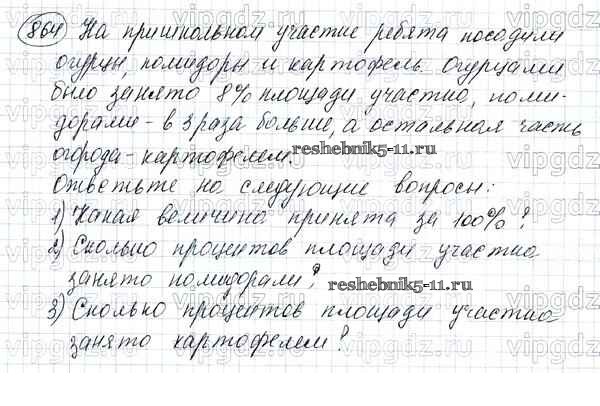 864 На пришкольном участке ребята посадили
огурцы, помидоры и картофель. Огурцами
было занято 8% площади участка, поми-
дорами - в 3 раза больше, а остальная часть
огорода - картофелем.
reshebnik5-11.ru
Ответьте на следующие вопросы:
1) Какая величина принята за 100%?
2) Сколько процентов площади участка
занято помидорами?
reshebnik5-11.ru
3) Сколько процентов площади участка
занято картофелем?
vipgdz.com